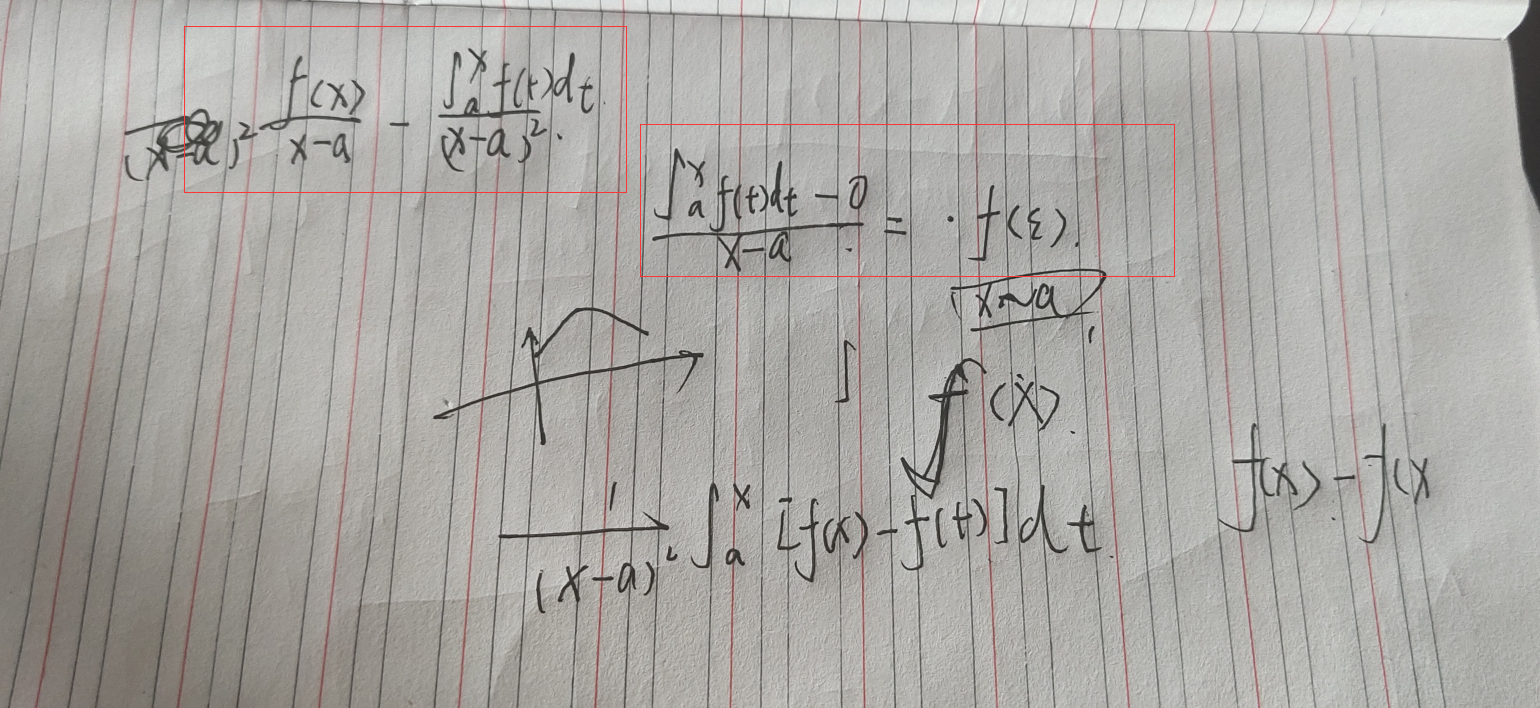 f(x)/(x-a) - ∫ₐˣ f(t)dt/(x-a)².
(∫ₐˣ f(t)dt - 0)/(x-a) = · f(ε).
x→a
∫
f(x).
1/(x-a)² ∫ₐˣ [f(x)-f(t)]dt.
f(x) - f(x